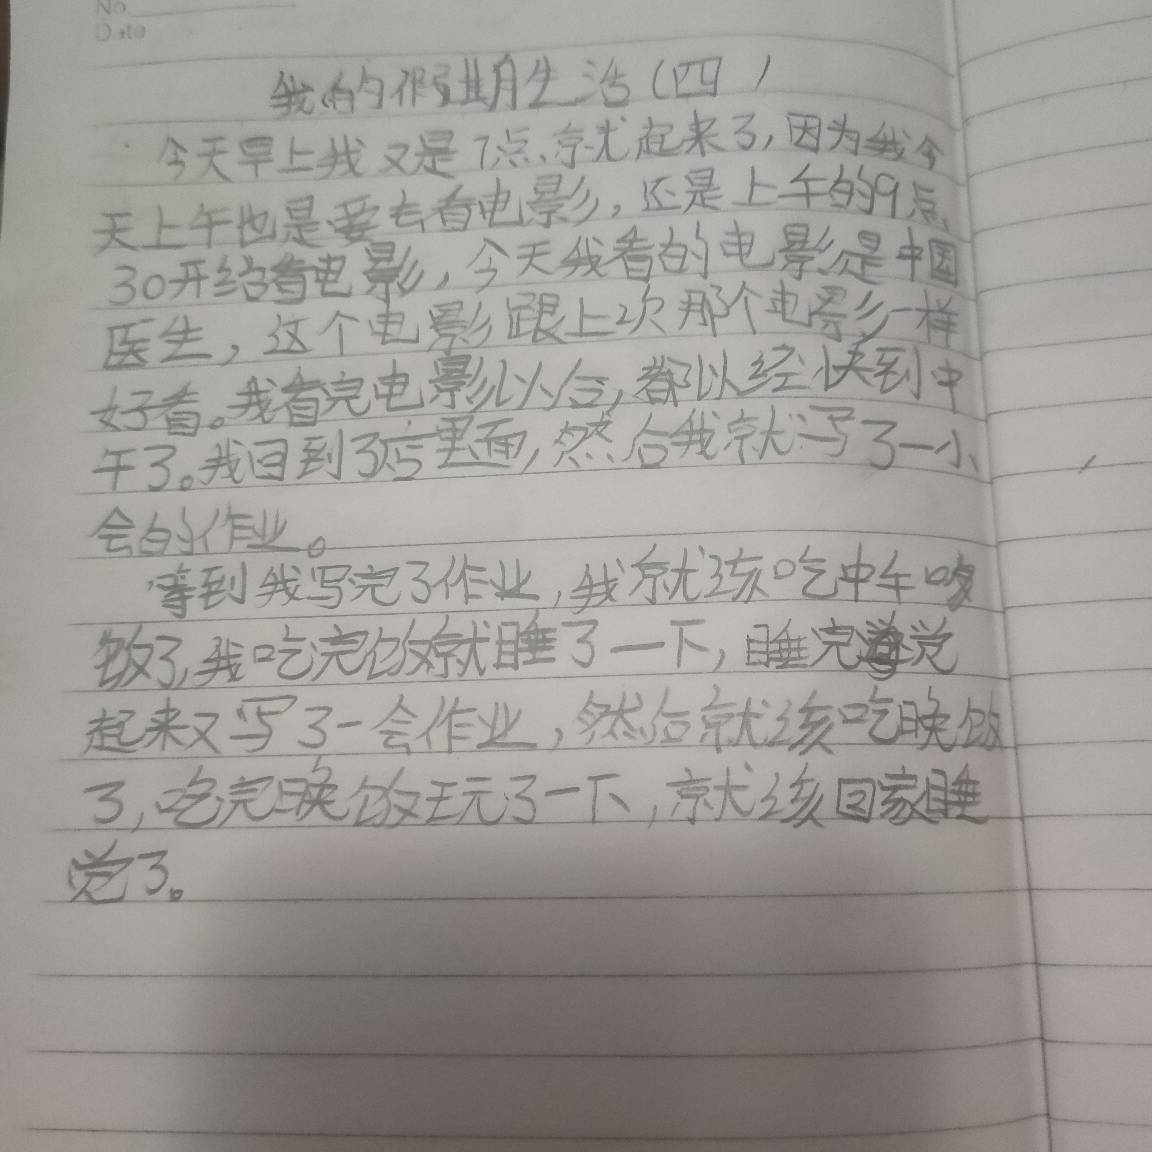 No
Date
我的假期生活(四)
今天早上我又是7点就起来了,因为我今
天上午也是要去看电影,还是上午的9点
30开给看电影,今天我看的电影是中国
医生,这个电影跟上次那个电影一样
好看。我看完电影以后,都以经快到中
午了。我回到了店里面,然后我就写了一小
会的作业。
等到我写完了作业,我就该吃中午
饭了,我吃完饭就睡了一下,睡完觉
起来又写了一会作业,然后就该吃晚饭
了,吃完晚饭玩了一下,就该回家睡
觉了。